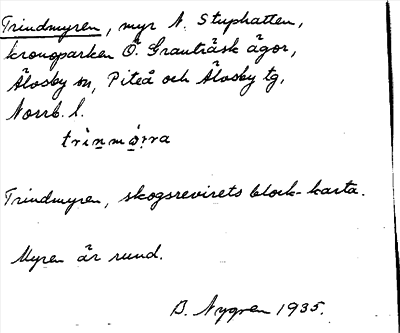 Trindmyren, myr N. Stuphatten,
kronoparken Ö. Grauträsk ägor,
Älvsby sn, Piteå och Älvsby tg,
Norrb. l.
trìn̲mó̤ṛra
Trindmyren, skogsrevirets block-karta.
Myren är rund.
B. Nygren 1935.